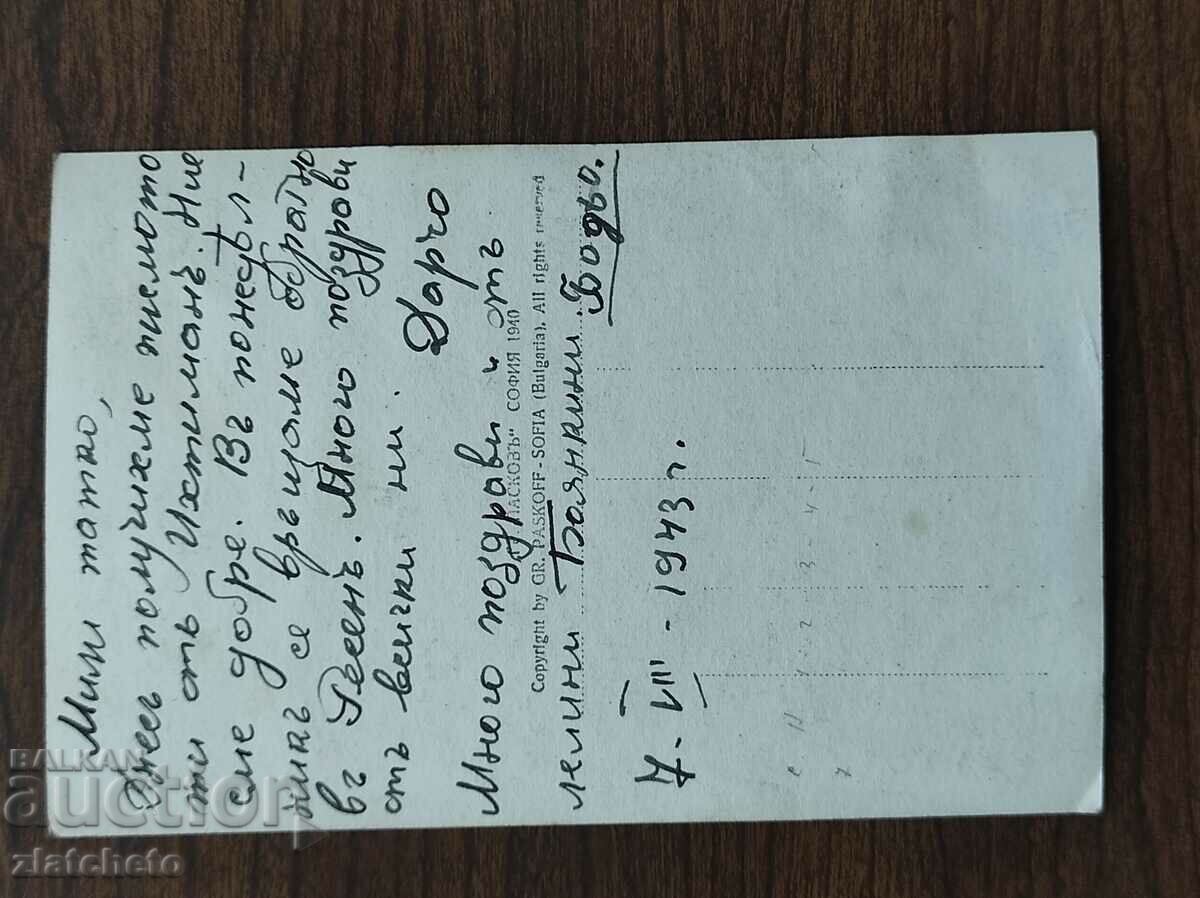 Мили татко,
Днесъ получихме писмото
ти отъ Ихтиманъ. Ние
сме добре. Въ понедѣл-
никъ се връщаме обратно
въ Ресенъ. Много поздрави
отъ всички ни. Дарчо
Много поздрави и отъ
ПАСКОВЪ" СОФИЯ 1940
Copyright by GR. PASKOFF - SOFIA (Bulgaria). All rights reserved
лелини Боянкини. Бодьо.
7. VIII - 1943 г.
BALKAN
auction
zlatcheto